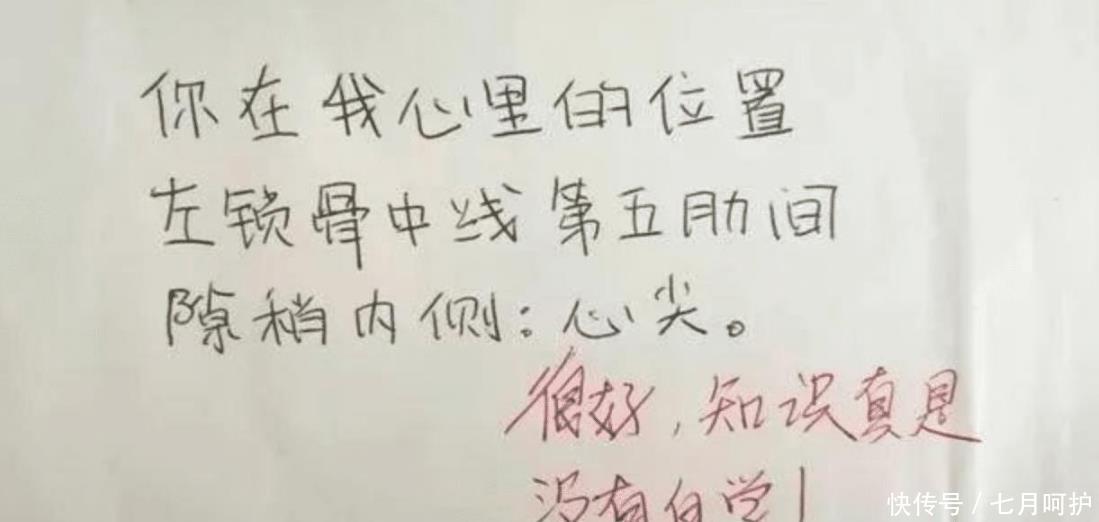 你在我心里的位置
左锁骨中线第五肋间
隙稍内侧:心尖。
很好,知识真是
没有白学!
快传号/七月呵护